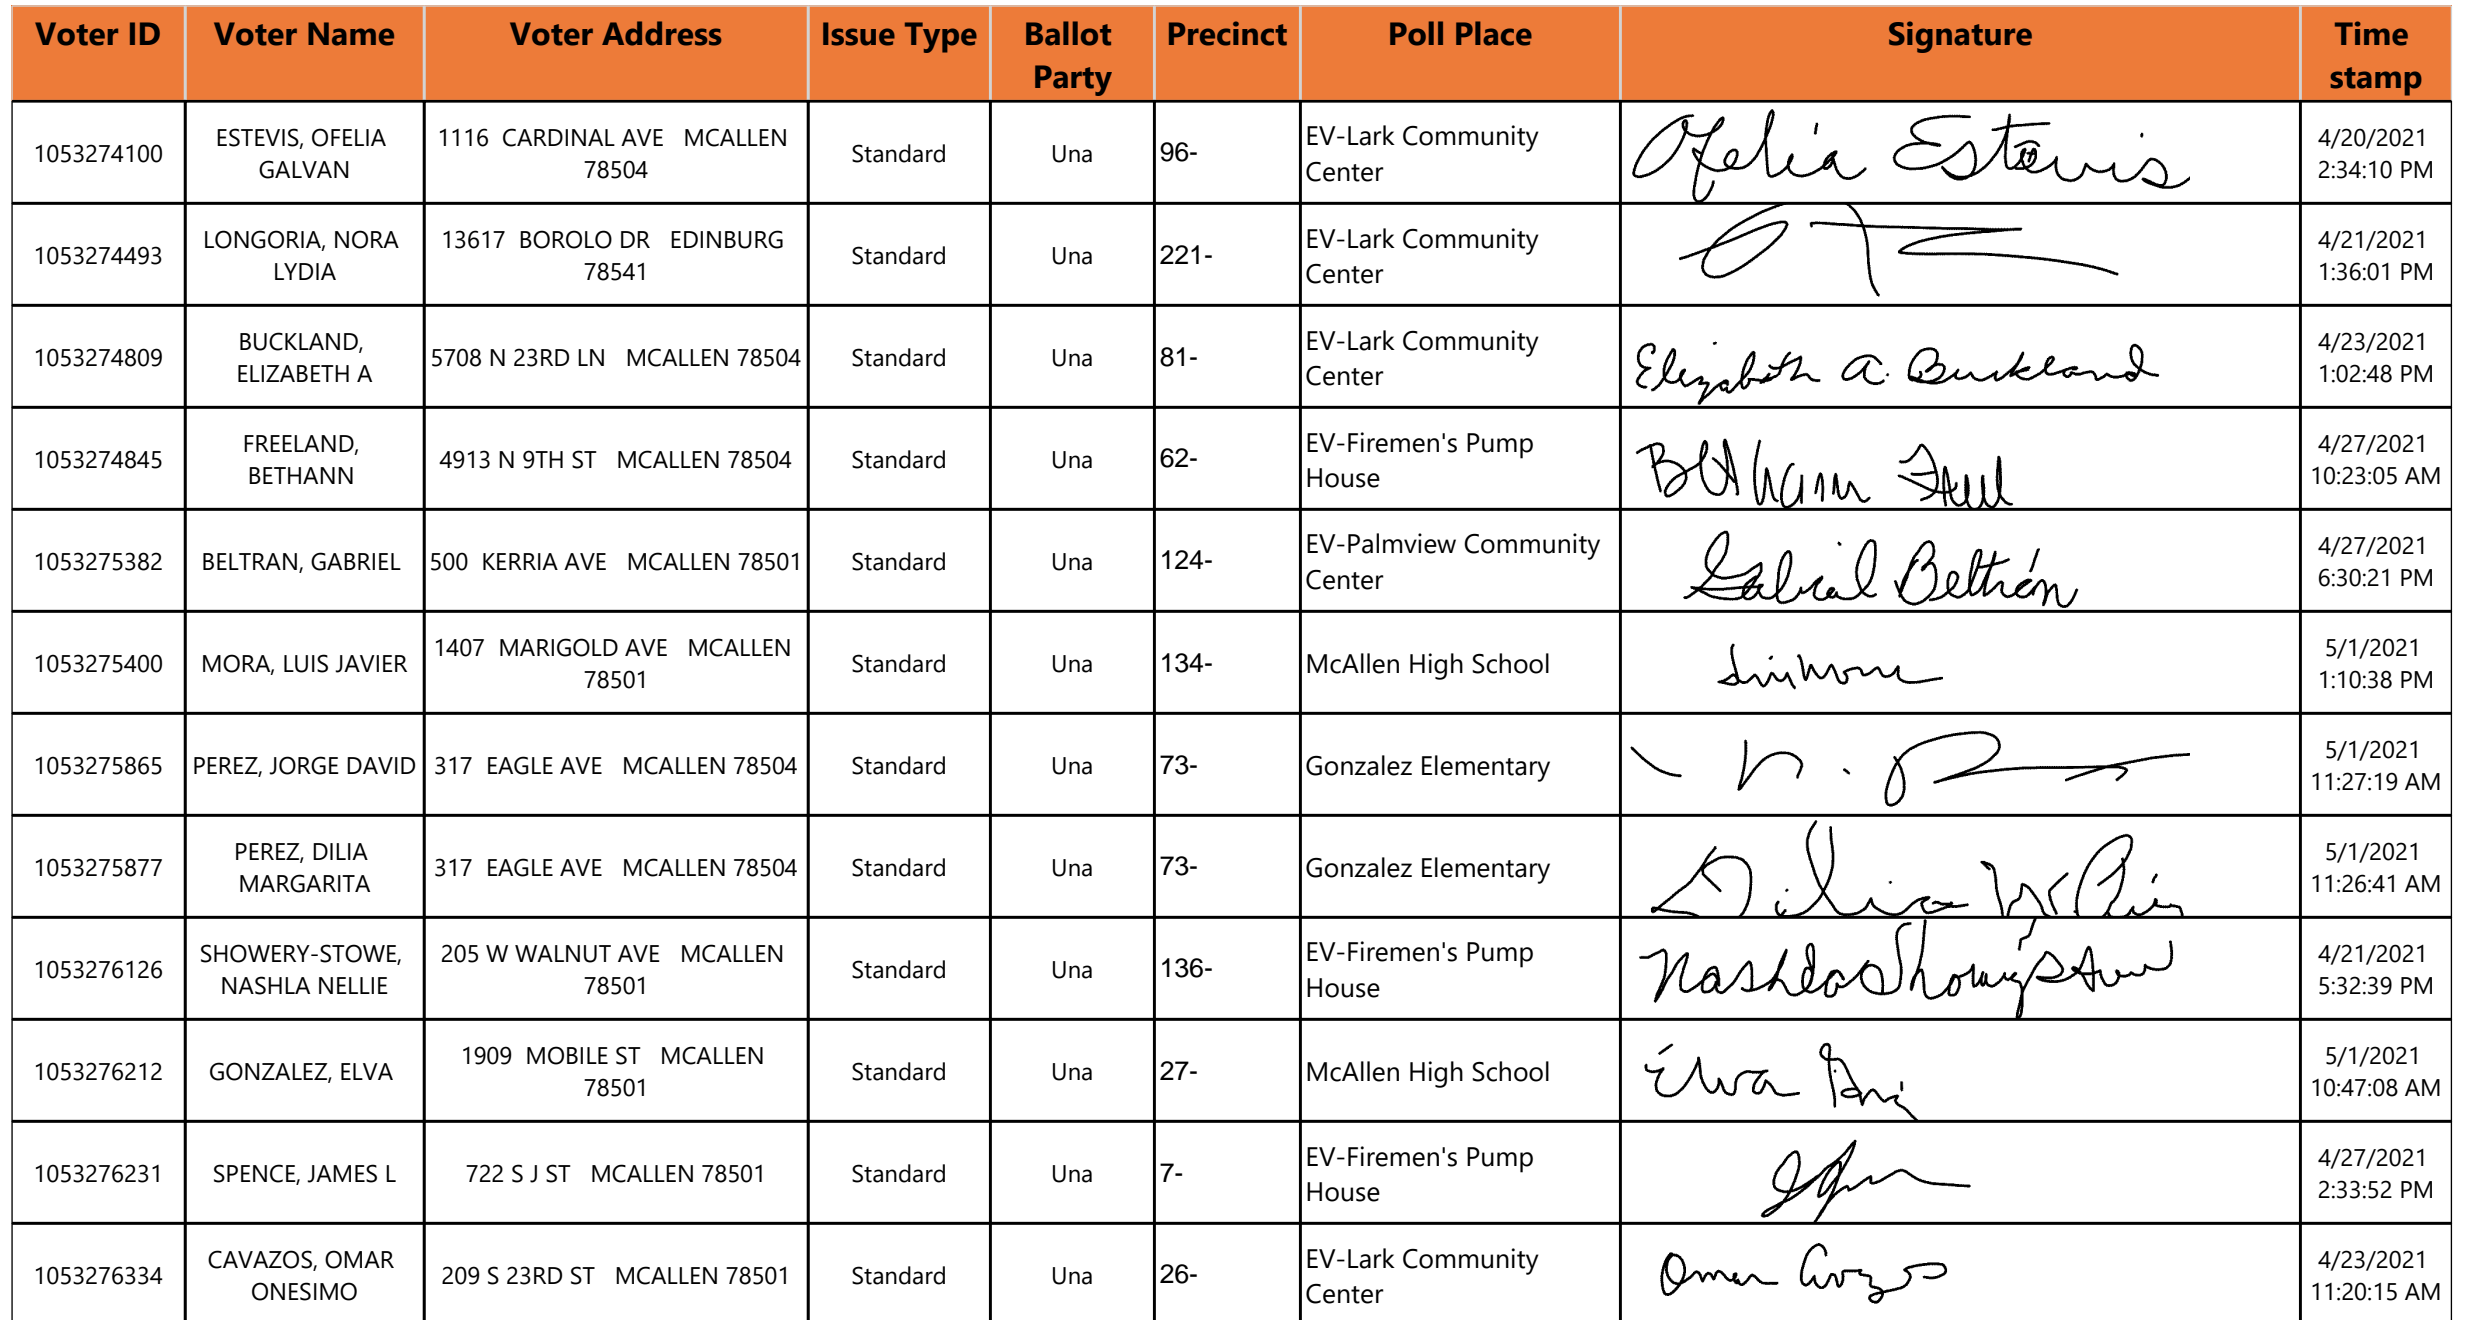 Voter ID Voter Name Voter Address Issue Type Ballot Party Precinct Poll Place Signature Time stamp
1053274100 ESTEVIS, OFELIA GALVAN 1116 CARDINAL AVE MCALLEN 78504 Standard Una 96- EV-Lark Community Center Ofelia Estevis 4/20/2021 2:34:10 PM
1053274493 LONGORIA, NORA LYDIA 13617 BOROLO DR EDINBURG 78541 Standard Una 221- EV-Lark Community Center 4/21/2021 1:36:01 PM
1053274809 BUCKLAND, ELIZABETH A 5708 N 23RD LN MCALLEN 78504 Standard Una 81- EV-Lark Community Center Elizabeth A. Buckland 4/23/2021 1:02:48 PM
1053274845 FREELAND, BETHANN 4913 N 9TH ST MCALLEN 78504 Standard Una 62- EV-Firemen's Pump House Bethann 4/27/2021 10:23:05 AM
1053275382 BELTRAN, GABRIEL 500 KERRIA AVE MCALLEN 78501 Standard Una 124- EV-Palmview Community Center Gabriel Beltrán 4/27/2021 6:30:21 PM
1053275400 MORA, LUIS JAVIER 1407 MARIGOLD AVE MCALLEN 78501 Standard Una 134- McAllen High School 5/1/2021 1:10:38 PM
1053275865 PEREZ, JORGE DAVID 317 EAGLE AVE MCALLEN 78504 Standard Una 73- Gonzalez Elementary 5/1/2021 11:27:19 AM
1053275877 PEREZ, DILIA MARGARITA 317 EAGLE AVE MCALLEN 78504 Standard Una 73- Gonzalez Elementary Dilia M. 5/1/2021 11:26:41 AM
1053276126 SHOWERY-STOWE, NASHLA NELLIE 205 W WALNUT AVE MCALLEN 78501 Standard Una 136- EV-Firemen's Pump House Nashla 4/21/2021 5:32:39 PM
1053276212 GONZALEZ, ELVA 1909 MOBILE ST MCALLEN 78501 Standard Una 27- McAllen High School Elva 5/1/2021 10:47:08 AM
1053276231 SPENCE, JAMES L 722 S J ST MCALLEN 78501 Standard Una 7- EV-Firemen's Pump House 4/27/2021 2:33:52 PM
1053276334 CAVAZOS, OMAR ONESIMO 209 S 23RD ST MCALLEN 78501 Standard Una 26- EV-Lark Community Center Omar 4/23/2021 11:20:15 AM